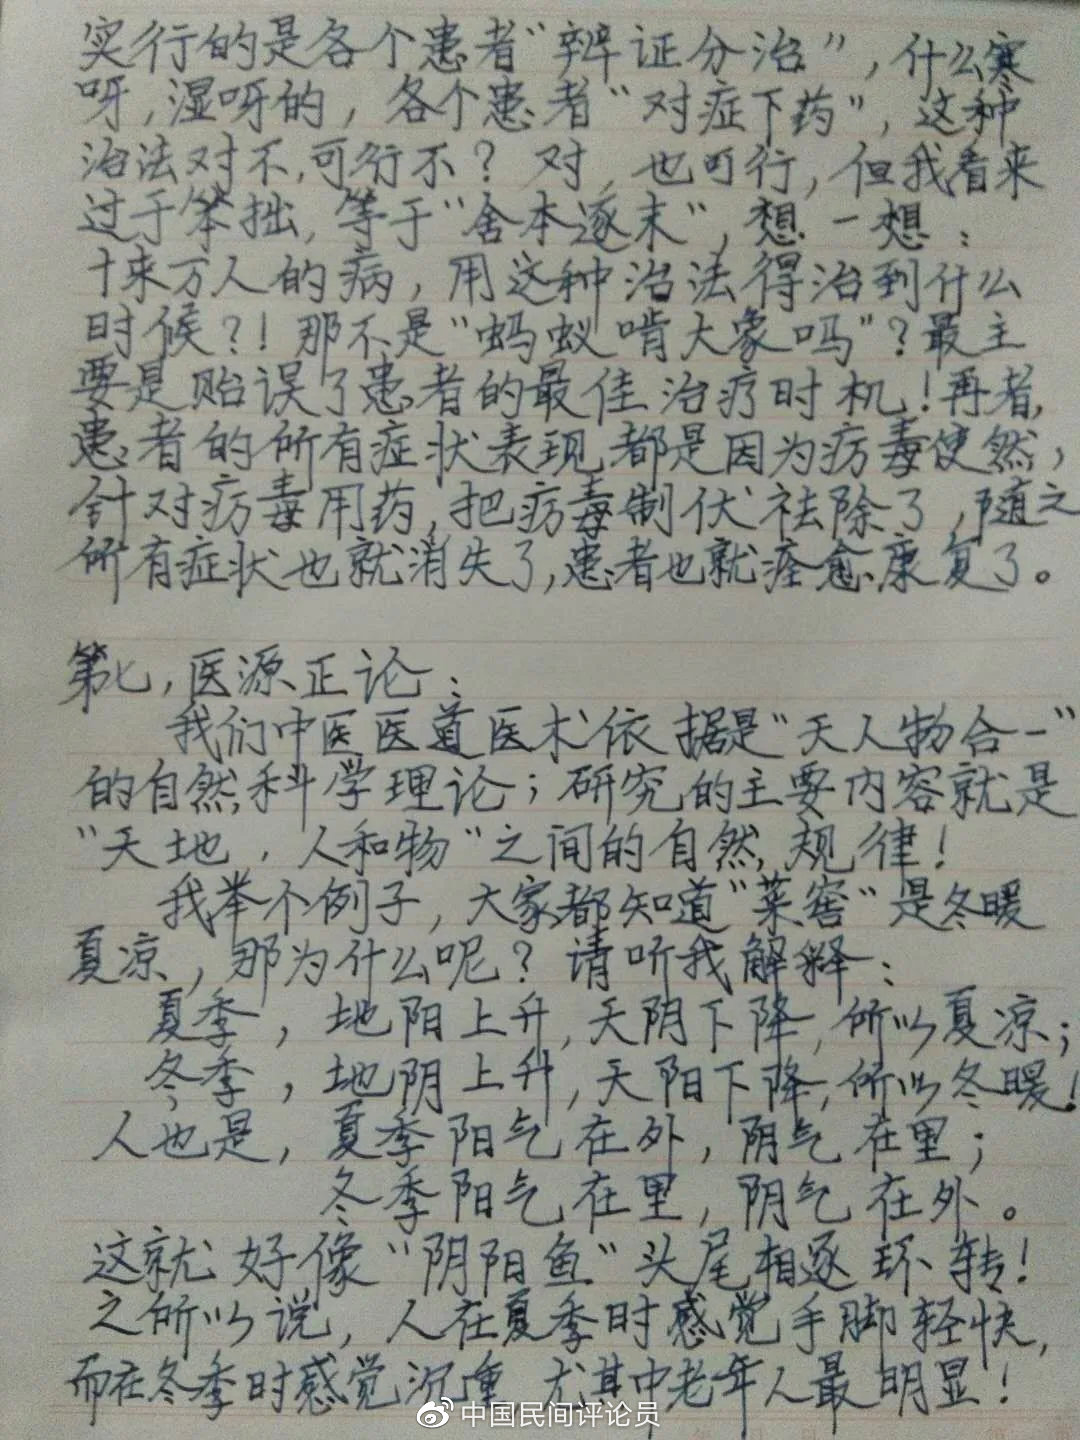 实行的是各个患者“辨证分治”，什么寒
呀，湿呀的，各个患者“对症下药”，这种
治法对不，可行不？对，也可行，但我看来
过于笨拙，等于“舍本逐末”，想一想：
十来万人的病，用这种治法得治到什么
时候？！那不是“蚂蚁啃大象吗”？最主
要是贻误了患者的最佳治疗时机！再者，
患者的所有症状表现都是因为病毒使然，
针对病毒用药，把病毒制伏祛除了，随之
所有症状也就消失了，患者也就痊愈康复了。
第七，医源正论：
我们中医医道医术依据是“天人物合一”
的自然科学理论；研究的主要内容就是
“天地，人和物”之间的自然规律！
我举个例子，大家都知道“菜窖”是冬暖
夏凉，那为什么呢？请听我解释：
夏季，地阳上升，天阴下降，所以夏凉；
冬季，地阴上升，天阳下降，所以冬暖！
人也是，夏季阳气在外，阴气在里；
冬季阳气在里，阴气在外。
这就好像“阴阳鱼”头尾相逐环转！
之所以说，人在夏季时感觉手脚轻快，
而在冬季时感觉沉重，尤其中老年人最明显！
中国民间评论员